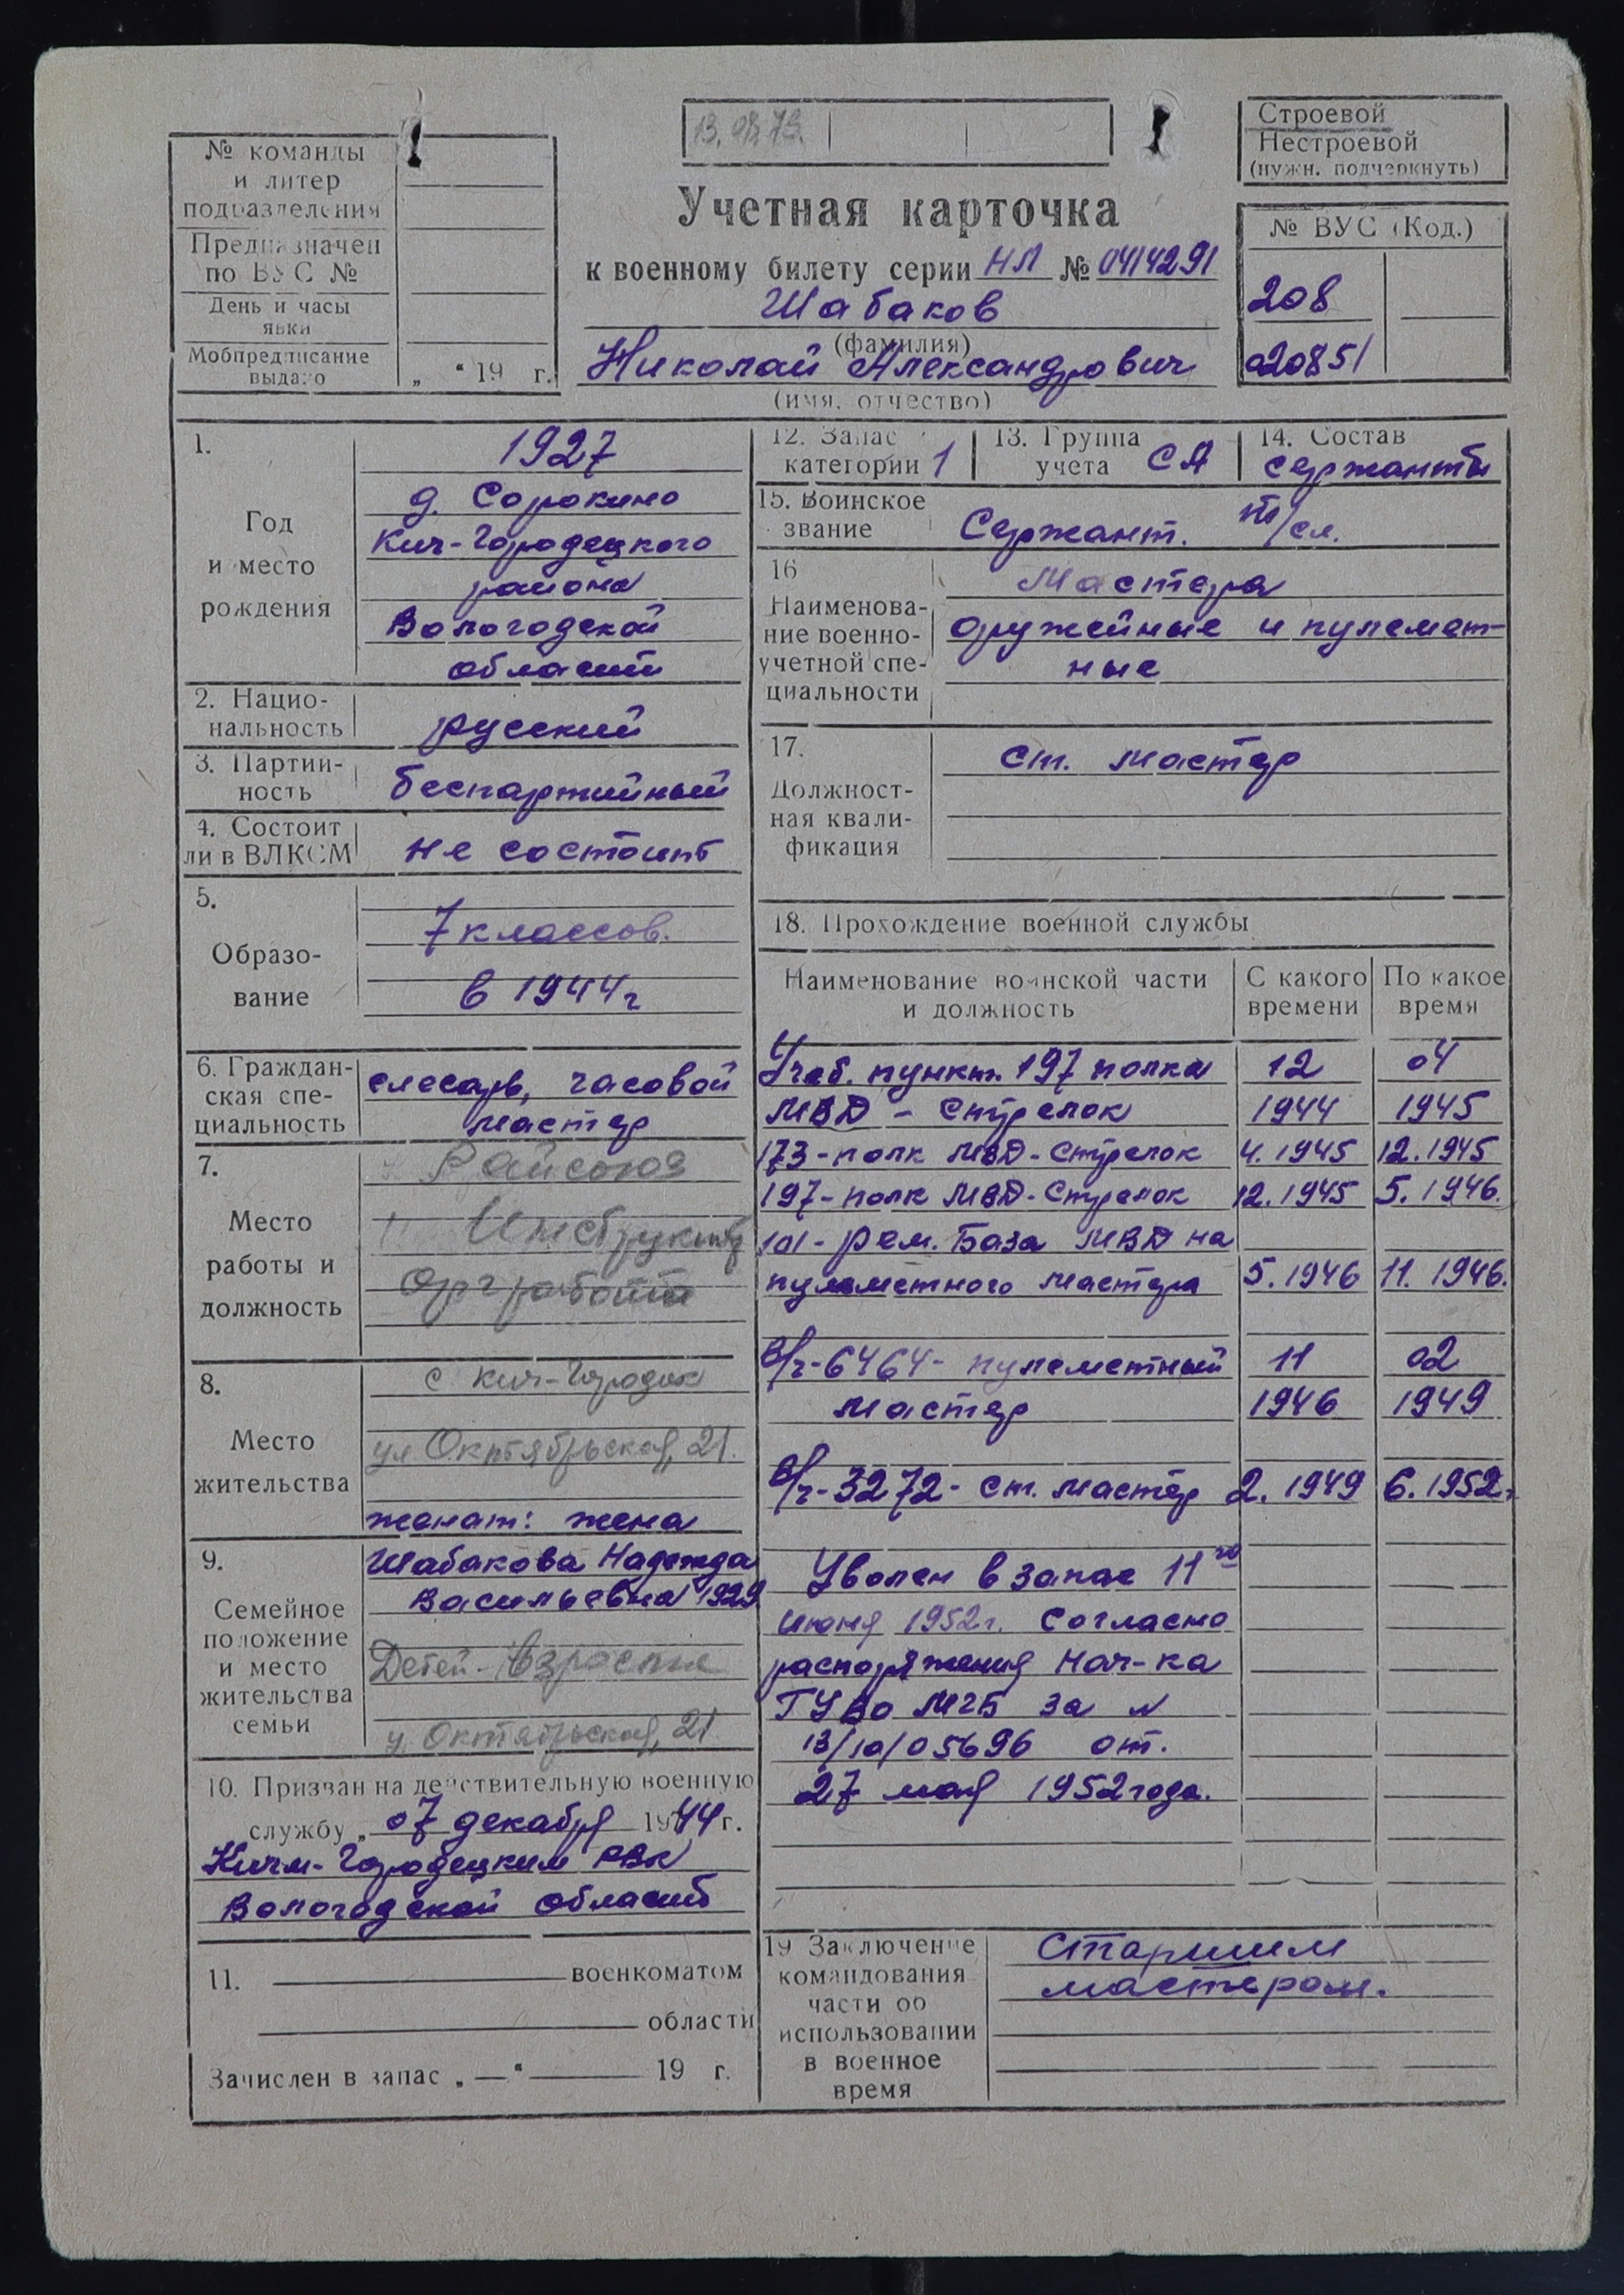 № команды
и литер
подразделения
Предназначен
по ВУС №
День и часы
явки
Мобпредписание
выдано „ “ 19 г.
13. 08. 73.
Строевой
Нестроевой
(нужн. подчеркнуть)
Учетная карточка
к военному билету серии НЛ № 0414291
Шабаков
(фамилия)
Николай Александрович
(имя, отчество)
№ ВУС (Код.)
208
020851
1.
Год
и место
рождения
1927
д. Сорокино
Кич-Городецкого
района
Вологодской
области
2. Нацио-
нальность
русский
3. Партий-
ность
беспартийный
4. Состоит
ли в ВЛКСМ
не состоит
5.
Образо-
вание
7 классов.
в 1944г
6. Граждан-
ская спе-
циальность
слесарь, часовой
мастер
7.
Место
работы и
должность
Райсоюз
Инструктор
Орг работы
8.
Место
жительства
с Кич-Городок
ул Октябрьская, 21.
женат: жена
9.
Семейное
положение
и место
жительства
семьи
Шабакова Надежда
Васильевна 1929
Детей - Взрослые
у. Октябрьская, 21
10. Призван на действительную военную
службу „ 07 декабря 1944 г.
Кичм-Городецким РВК
Вологодской области
11. военкоматом
области
Зачислен в запас „ — “ 19 г.
12. Запас
категории 1
13. Группа
учета СА
14. Состав
сержанты
15. Воинское
звание
Сержант. т/сл.
16
Наименова-
ние военно-
учетной спе-
циальности
Мастера
оружейные и пулемет-
ные
17.
Должност-
ная квали-
фикация
ст. мастер
18. Прохождение военной службы
Наименование воинской части
и должность
С какого
времени
По какое
время
Учеб. пункт. 197 полка 12 04
МВД - Стрелок 1944 1945
173-полк МВД-Стрелок 4.1945 12.1945
197-полк МВД-Стрелок 12.1945 5.1946.
101-рем. База МВД на
пулеметного мастера 5.1946 11.1946.
В/ч-6464- пулеметный 11 02
мастер 1946 1949
В/ч-3272- ст. мастер 2.1949 6.1952.
Уволен в запас 11го
июня 1952г. Согласно
распоряжения Нач-ка
ГУВО МГБ за №
13/10/05696 от.
27 мая 1952 года.
19 Заключение
командования
части об
использовании
в военное
время
Старшим
мастером.